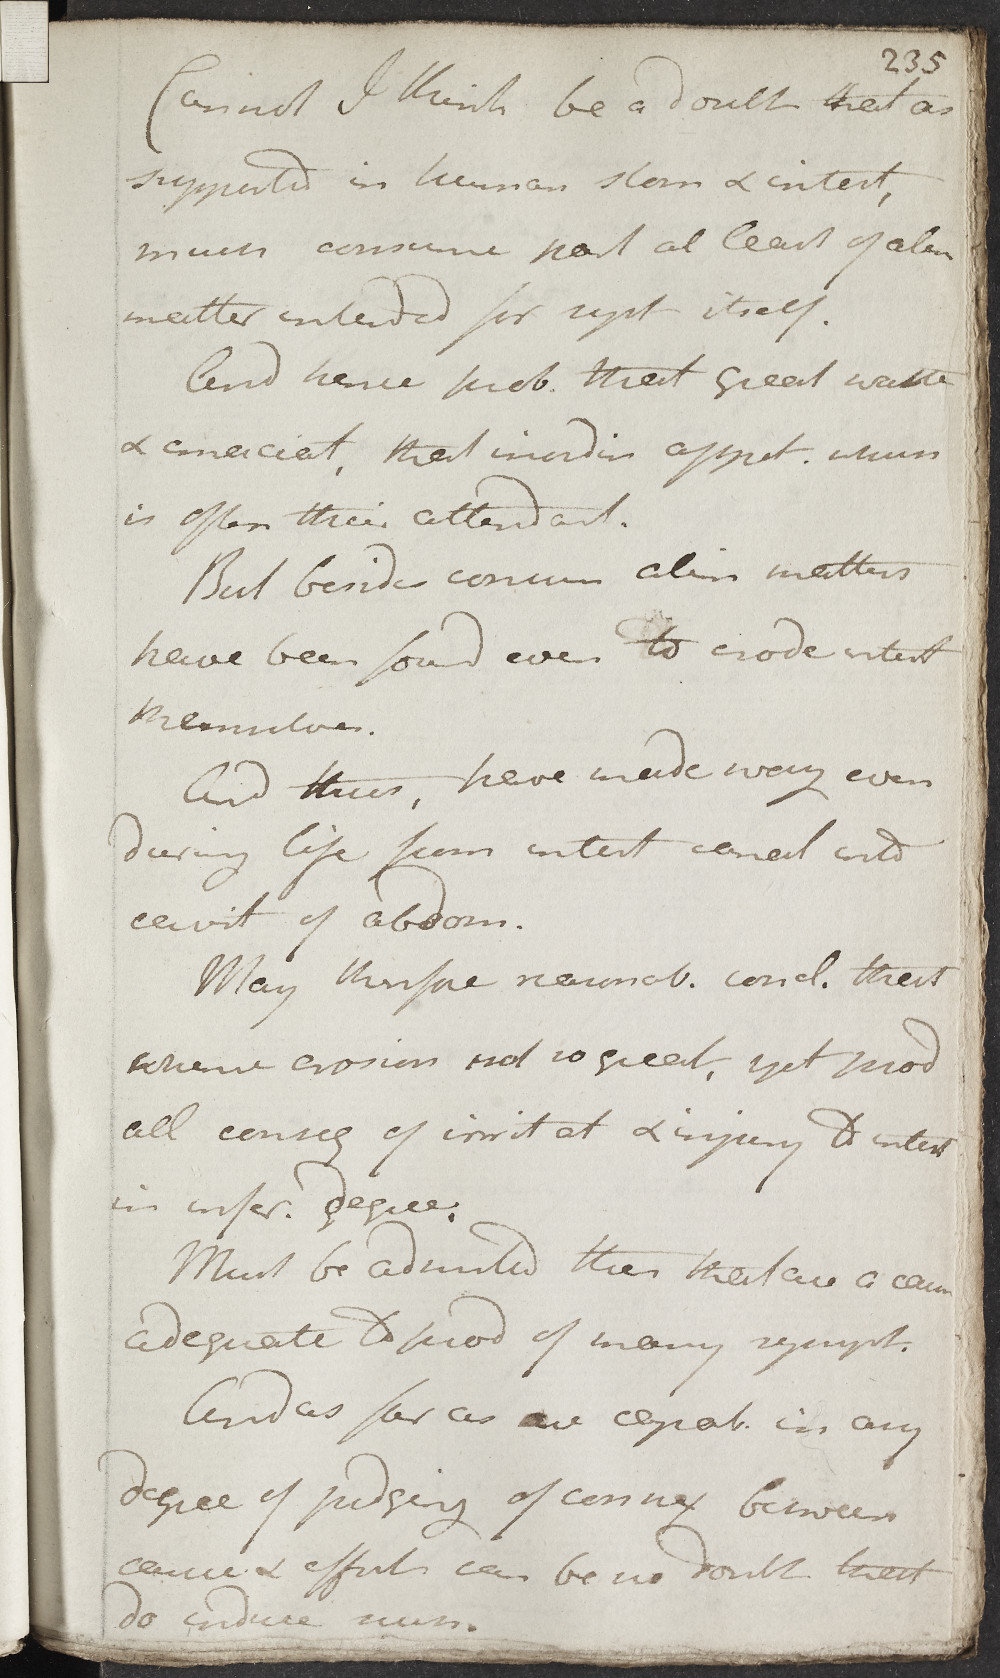 235
Cannot I think be a doubt that as
supported in human stom & intest,
must consume part at least of alim
matter intended for syst itself.
And hence prob. that great waste
& emaciat, that inordin appet. which
is often their attendant.
But besides consum alim matters
have been found even to erode intest
themselves.
And thus, have made way even
during life from intest canal into
cavit of abdom.
May therefore reasonab. concl. that
where erosion not so great, yet prod
all conseq of irritat & injury to intest
in infer. degree.
Must be admitted then that are a caus
adequate to prod of many sympt.
And as far as are capab. in any
degree of judging of connex between
cause & effect can be no doubt that
do induce